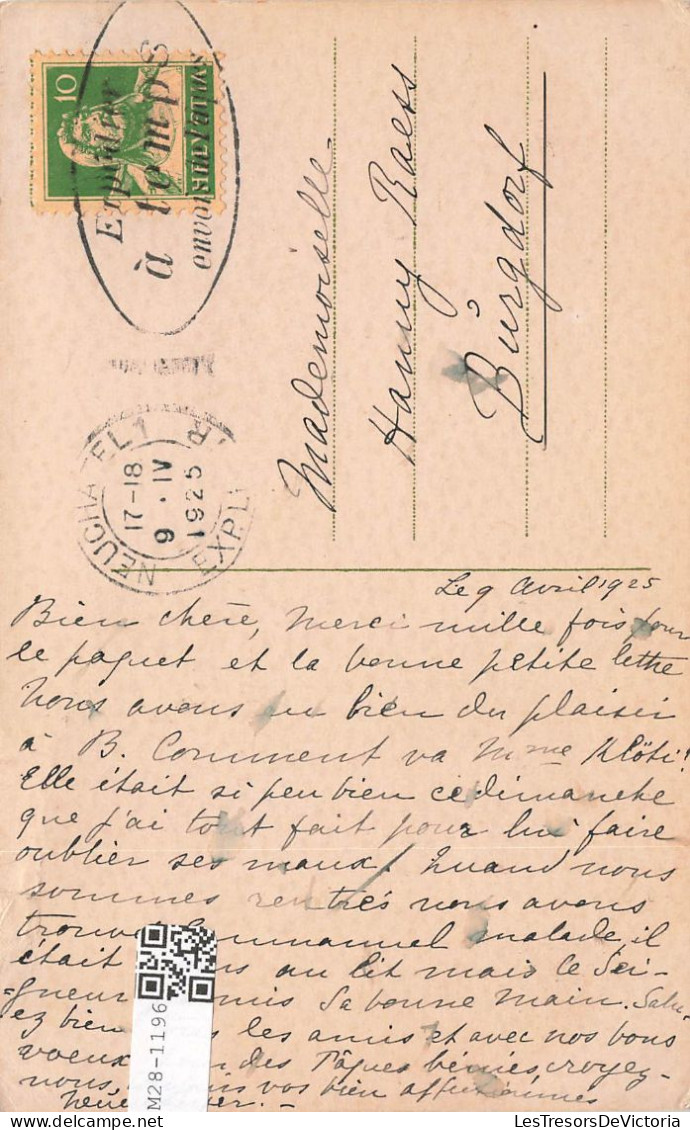 10
Expédier
à temps
envois
Mademoiselle
Hanny Raess
Burgdorf
NEUCHATEL 1
17-18
9. IV
1925
EXPL
Le 9 Avril 1925
Bien chère, Merci mille fois pour
le paquet et la bonne petite lettre
Nous avons eu bien du plaisir
à B. Comment va Mme Klöti!
Elle était si peu bien ce dimanche
que j'ai tout fait pour lui faire
oublier ses maux! Quand nous
sommes rentrés nous avons
malade, il
était au lit mais le Sei-
gneur mis Sa bonne main. Salu-
ez bien les amis et avec nos bons
voeux des Pâques bénies, croyez-
nous, vos bien affectionnés
M28-1196
LesTresorsDeVictoria
delcampe.net